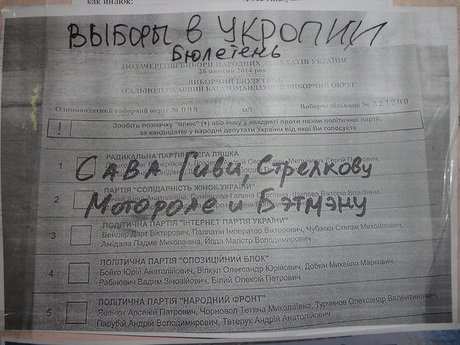 ВЫБОРЫ В УКРОПИИ
БЮЛЕТЕНЬ
ПОЗАЧЕРГОВІ ВИБОРИ НАРОДНИХ ДЕПУТАТІВ УКРАЇНИ
26 жовтня 2014 року
ВИБОРЧИЙ БЮЛЕТЕНЬ
ЗАГАЛЬНОДЕРЖАВНИЙ БАГАТОМАНДАТНИЙ ВИБОРЧИЙ ОКРУГ
Одномандатний виборчий округ №
М/П
Виборча дільниця №
! Зробіть позначку "плюс" (+) або іншу у квадраті проти назви політичної партії,
за кандидатів у народні депутати України від якої Ви голосуєте
1 РАДИКАЛЬНА ПАРТІЯ ОЛЕГА ЛЯШКА
САВА ГИВИ, СТРЕЛКОВУ
2 ПАРТІЯ "СОЛІДАРНІСТЬ ЖІНОК УКРАЇНИ"
МОТОРОЛЕ И БЭТМЭНУ
3 ПОЛІТИЧНА ПАРТІЯ "ІНТЕРНЕТ ПАРТІЯ УКРАЇНИ"
Вейдер Дарт Вікторович, Палпатін Імператор Вікторович, Чубакка Степан Михайлович,
Амідала Падме Миколаївна, Йода Майстр Володимирович
4 ПОЛІТИЧНА ПАРТІЯ "ОПОЗИЦІЙНИЙ БЛОК"
Бойко Юрій Анатолійович, Вілкул Олександр Юрійович, Добкін Михайло Маркович,
Рабінович Вадим Зіновійович, Білий Олексій Петрович
5 ПОЛІТИЧНА ПАРТІЯ "НАРОДНИЙ ФРОНТ"
Яценюк Арсеній Петрович, Чорновол Тетяна Миколаївна, Турчинов Олександр Валентинович,
Парубій Андрій Володимирович, Тетерук Андрій Анатолійович